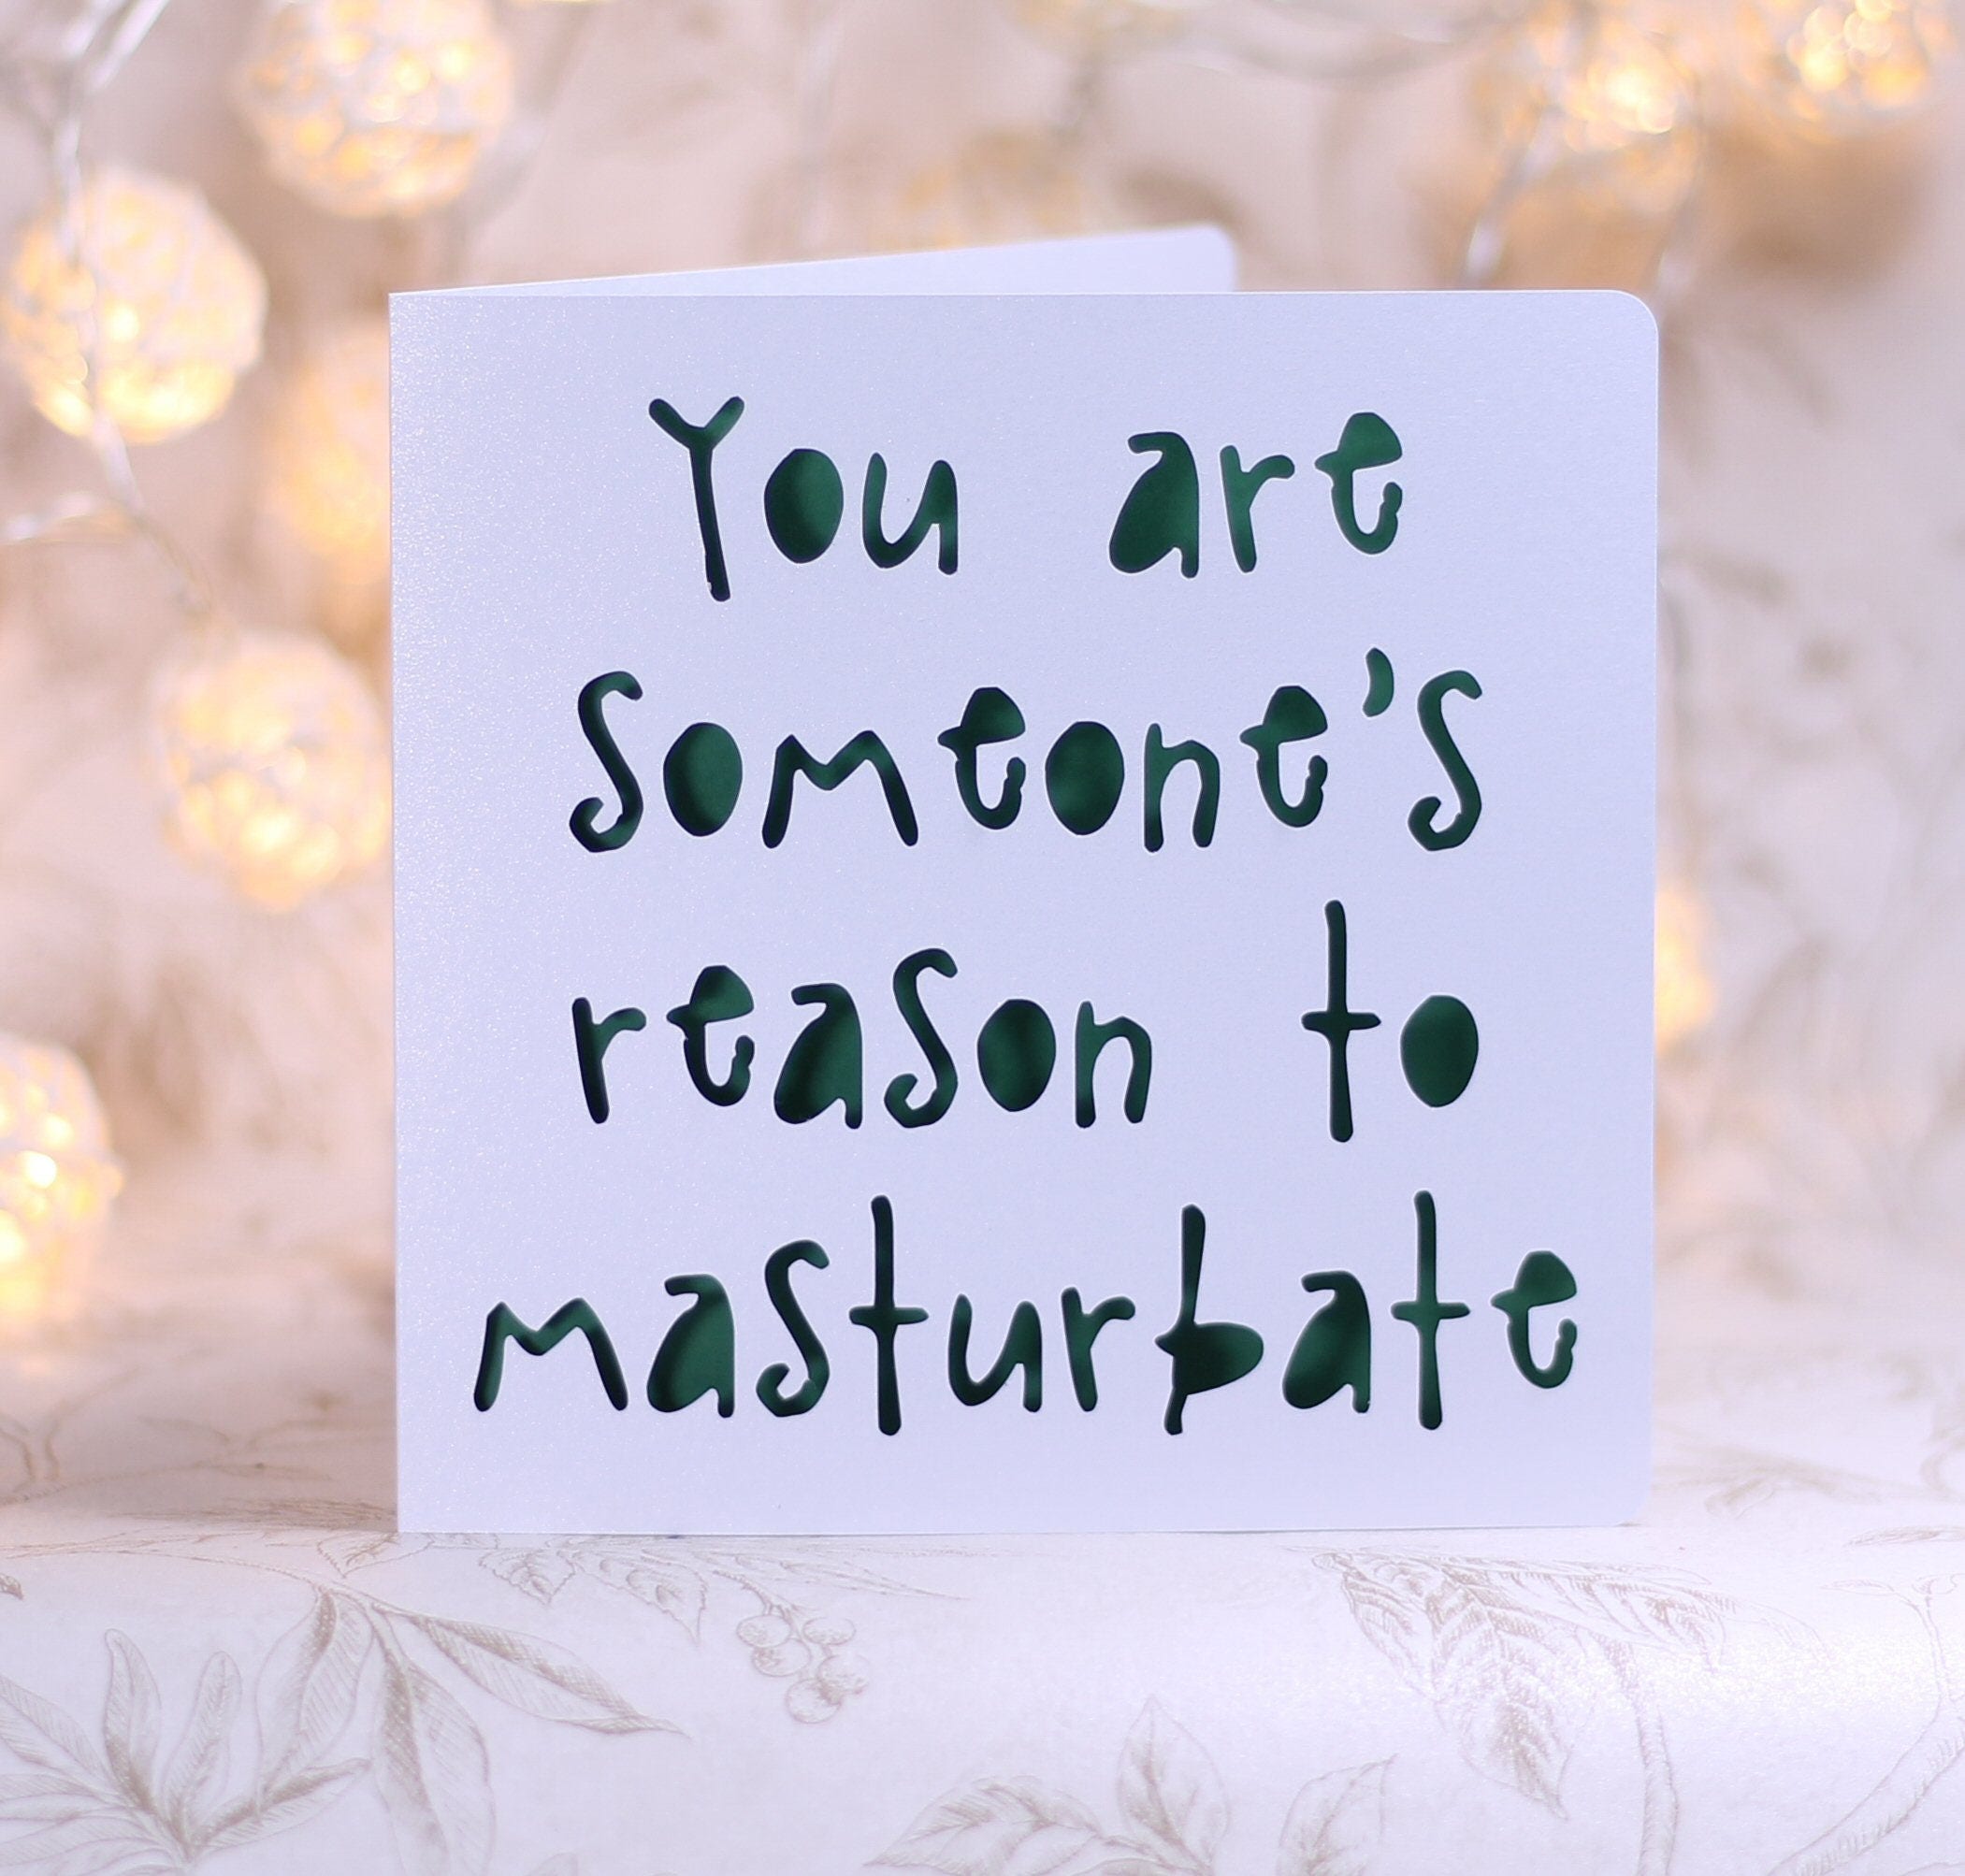 You are
someone's
reason to
masturbate